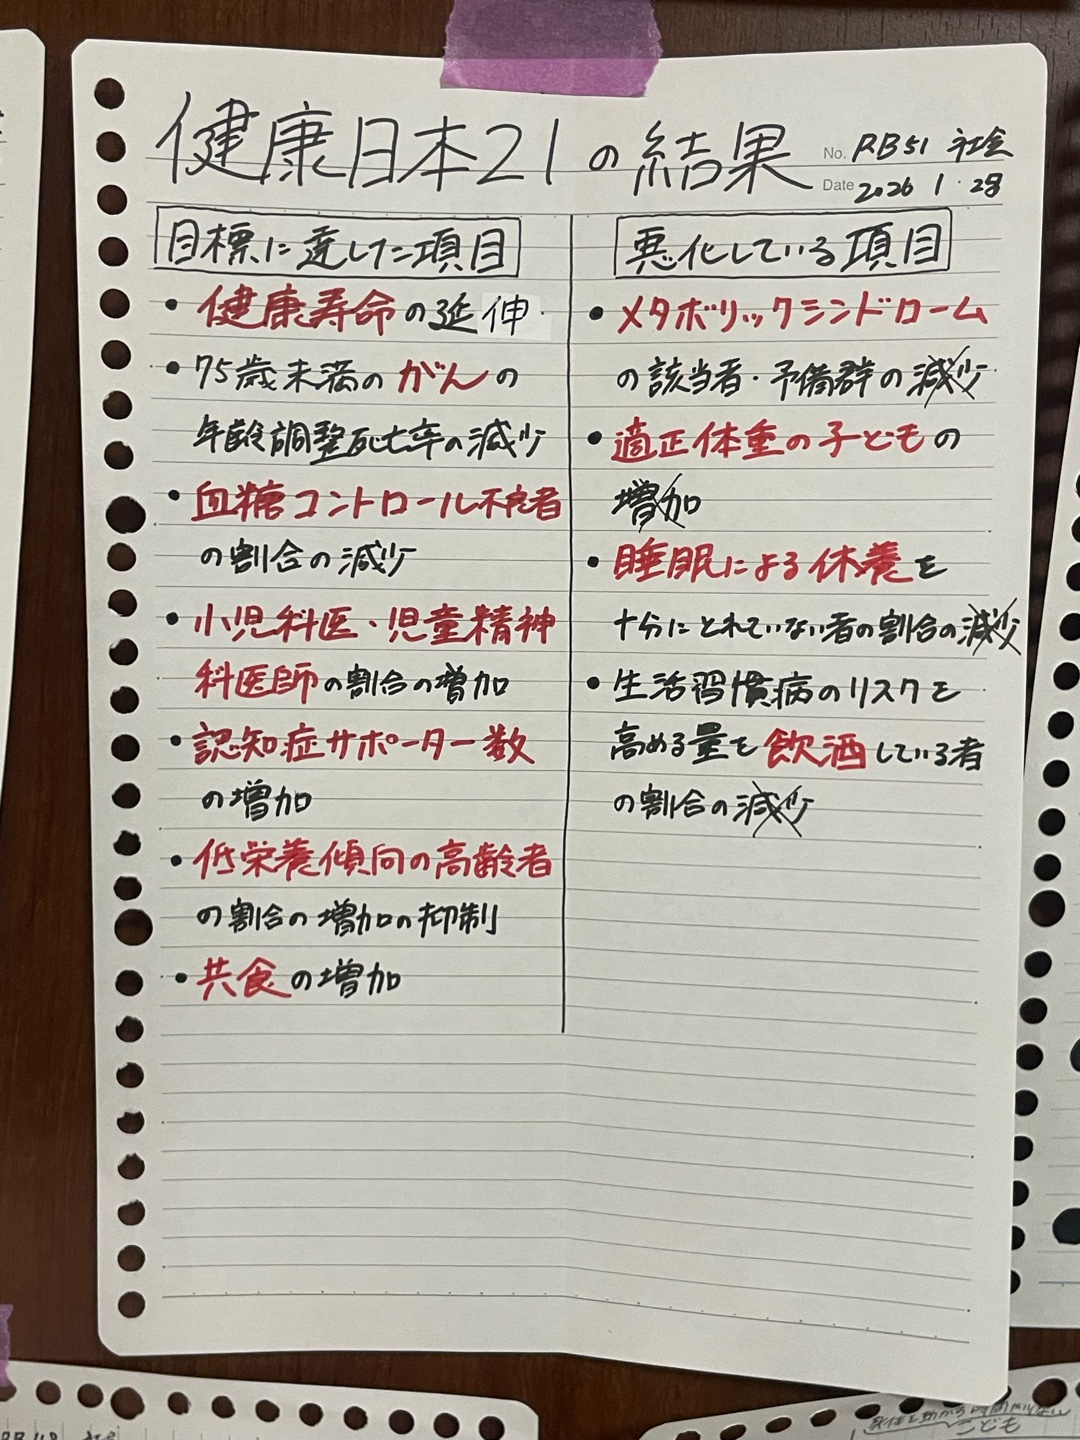 健康日本21の結果
No. RB51 社会
Date 2026 1・28
目標に達した項目
・健康寿命の延伸
・75歳未満のがんの
年齢調整死亡率の減少
・血糖コントロール不良者
の割合の減少
・小児科医、児童精神
科医師の割合の増加
・認知症サポーター数
の増加
・低栄養傾向の高齢者
の割合の増加の抑制
・共食の増加
悪化している項目
・メタボリックシンドローム
の該当者・予備群の減少
・適正体重の子どもの
増加
・睡眠による休養を
十分にとれていない者の割合の減少
・生活習慣病のリスクを
高める量を飲酒している者
の割合の減少
こども